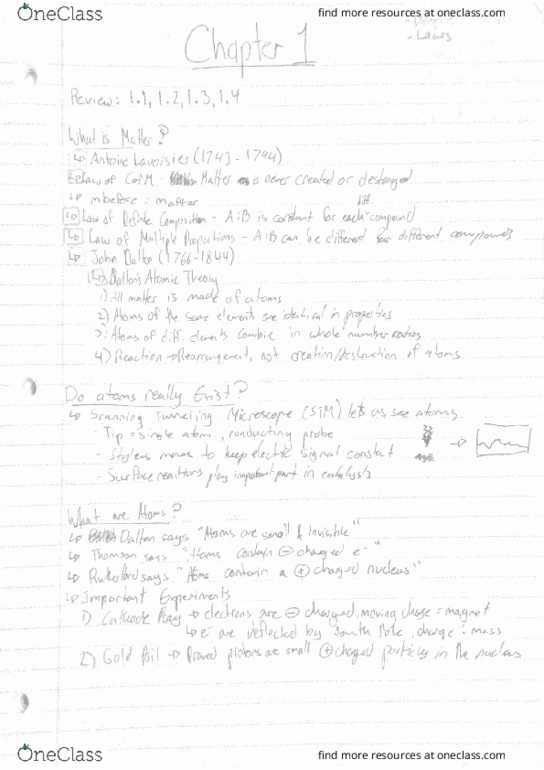 OneClass
find more resources at oneclass.com
- Laws
Chapter 1
Review: 1.1, 1.2, 1.3, 1.4
What is Matter?
↳ Antoine Lavoisier (1743-1794)
↳ Law of CofM - Matter is never created or destroyed
↳ mbefore : mafter
diff.
↳ Law of Definite Composition - A:B is constant for each compound
↳ Law of Multiple Proportions - A:B can be different for different compounds
↳ John Dalton (1766-1844)
↳ Dalton's Atomic Theory
1) All matter is made of atoms
2) Atoms of the same elements are identical in properties
3) Atoms of diff. elements combine in whole number ratios
4) Reaction → Rearrangement, not creation/destruction of atoms
Do atoms really Exist?
↳ Scanning Tunneling Microscope (STM) lets us see atoms
- Tip = single atom, conducting probe
- Stylus moves to keep electric signal constant
- Surface reactions play important part in catalysis
What are Atoms?
↳ Dalton says "Atoms are small & invisible"
↳ Thomson says "Atoms contain ⊖ charged e⁻"
↳ Rutherford says "Atoms contain a ⊕ charged nucleus"
↳ Important Experiments
1) Cathode Ray → electrons are ⊖ charged, moving charge = magnet
↳ e⁻ are deflected by south Pole, charge : mass
2) Gold Foil → Proved protons are small ⊕ charged particles in the nucleus
OneClass
find more resources at oneclass.com